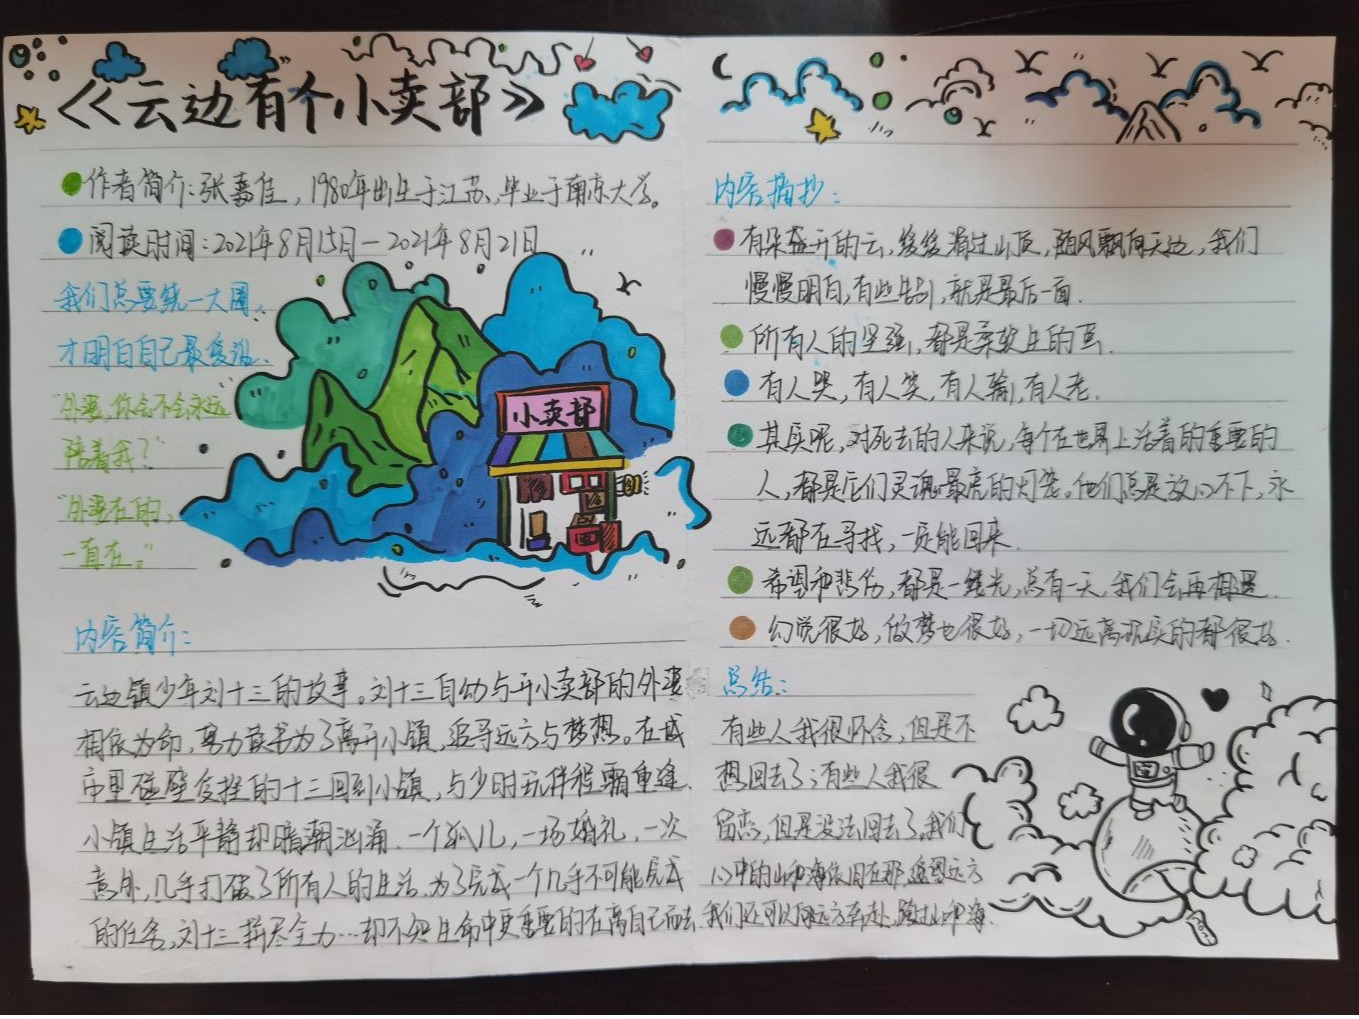 《云边有个小卖部》
作者简介：张嘉佳，1980年出生于江苏，毕业于南京大学。
阅读时间：2021年8月15日—2021年8月21日
我们总要绕一大圈，
才明白自己最爱谁.
"外婆，你会不会永远
陪着我？"
"外婆在的，
一直在。"
小卖部
内容简介：
云边镇少年刘十三的故事。刘十三自幼与开小卖部的外婆
相依为命，努力读书为了离开小镇，追寻远方与梦想。在城
市里碰壁受挫的十三回到小镇，与少时玩伴程霜重逢.
小镇生活平静却暗潮汹涌.一个孤儿，一场婚礼，一次
意外，几乎打破了所有人的生活.为了完成一个几乎不可能完成
的任务，刘十三拼尽全力…却不知生命中更重要的在离自己而去.
内容摘抄：
有朵盛开的云，缓缓滑过山顶，随风飘向天边，我们
慢慢明白，有些告别，就是最后一面.
所有人的坚强，都是柔软生的茧.
有人哭，有人笑，有人输，有人老.
其实呢，对死去的人来说，每个在世界上活着的重要的
人，都是他们灵魂最亮的灯笼。他们总是放心不下，永
远都在寻找，一定能回来.
希望和悲伤，都是一缕光，总有一天，我们会再相遇.
幻觉很好，做梦也很好，一切远离现实的都很好.
总结：
有些人我很怀念，但是不
想回去了；有些人我很
留恋，但是没法回去了。我们
心中的山和海依旧在那，追寻远方
我们还可以向远方奔赴，跨过山和海.